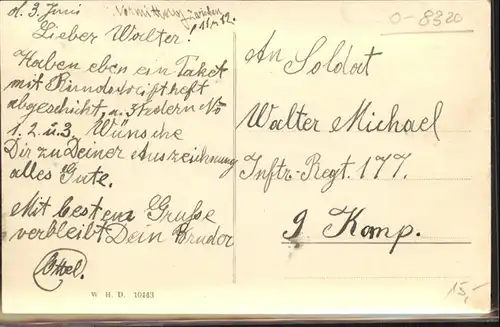 d. 3. Juni Vormittag zwischen
11 u. 12.
Lieber Walter!
Haben eben ein Paket
mit Rundschriftheft
abgeschikt, u. 3 Federn No
1. 2. u. 3. Wünsche
Dir zu Deiner Auszeichnung
alles Gute.
Mit bestem Gruße
verbleibt Dein Bruder
W. H. D. 10443
0-8320
An Soldat
Walter Michael
Inftr-Regt. 177.
9 Komp.
15,-